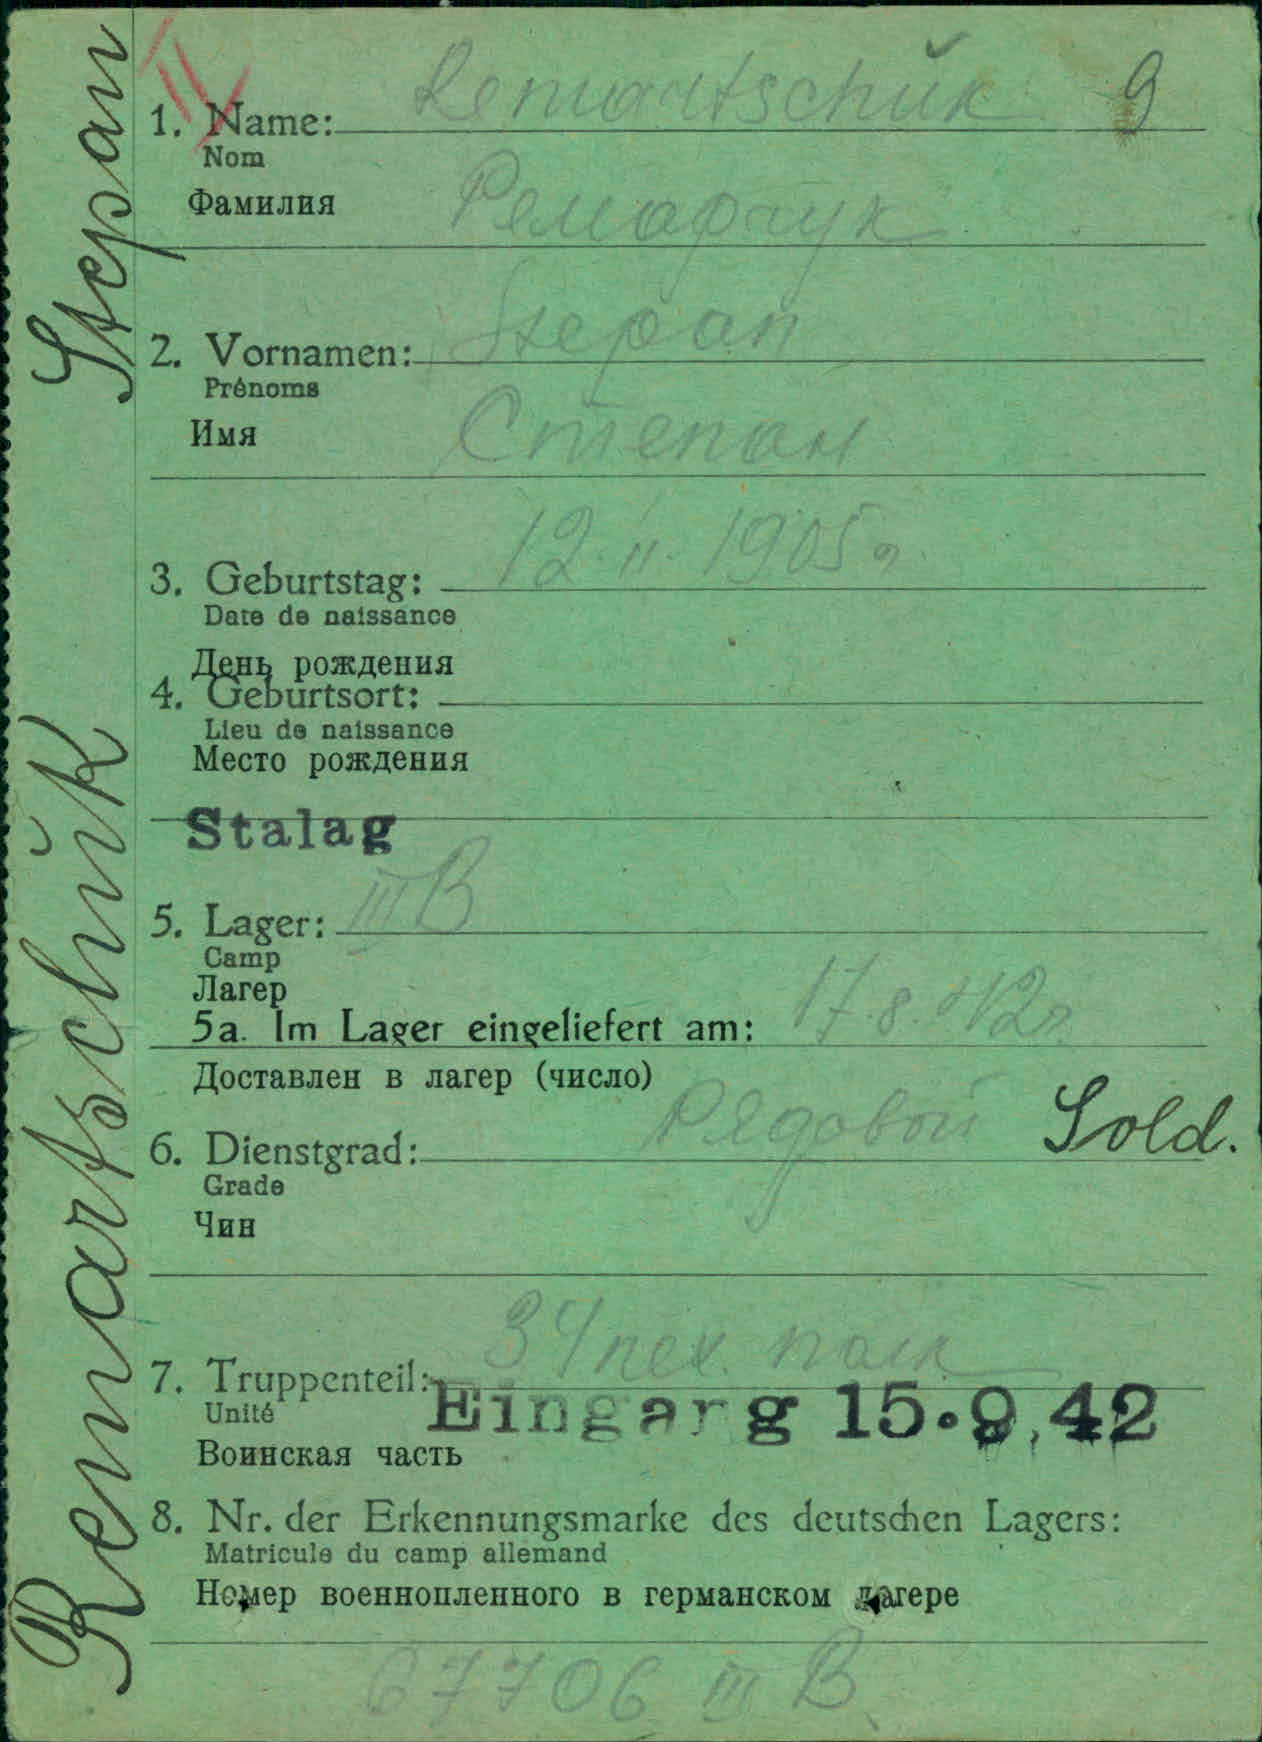 Remartschuk Stepan
II
1. Name: Remartschuk 9
Nom
Фамилия Ремарчук
2. Vornamen: Stepan
Prénoms
Имя Степан
3. Geburtstag: 12. II. 1905 г.
Date de naissance
День рождения
4. Geburtsort:
Lieu de naissance
Место рождения
Stalag
5. Lager: III B
Camp
Лагер
5a. Im Lager eingeliefert am: 17.8.42г.
Доставлен в лагер (число)
6. Dienstgrad: Рядовой Sold.
Grade
Чин
7. Truppenteil: 34 пех. полк
Unité Eingang 15.9.42
Воинская часть
8. Nr. der Erkennungsmarke des deutschen Lagers:
Matricule du camp allemand
Номер военнопленного в германском лагере
67706 III B